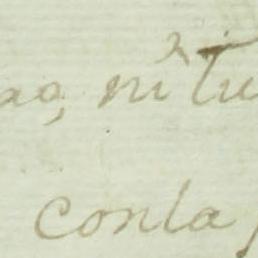 ao, ni tu
conla